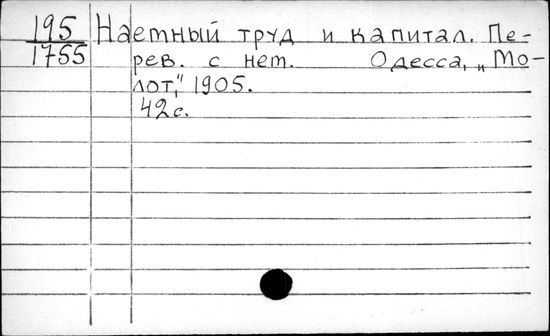 195 Наемный труд и капитал. Пе-
1755 рев. с нем. Одесса, „Мо-
лот," 1905.
42с.